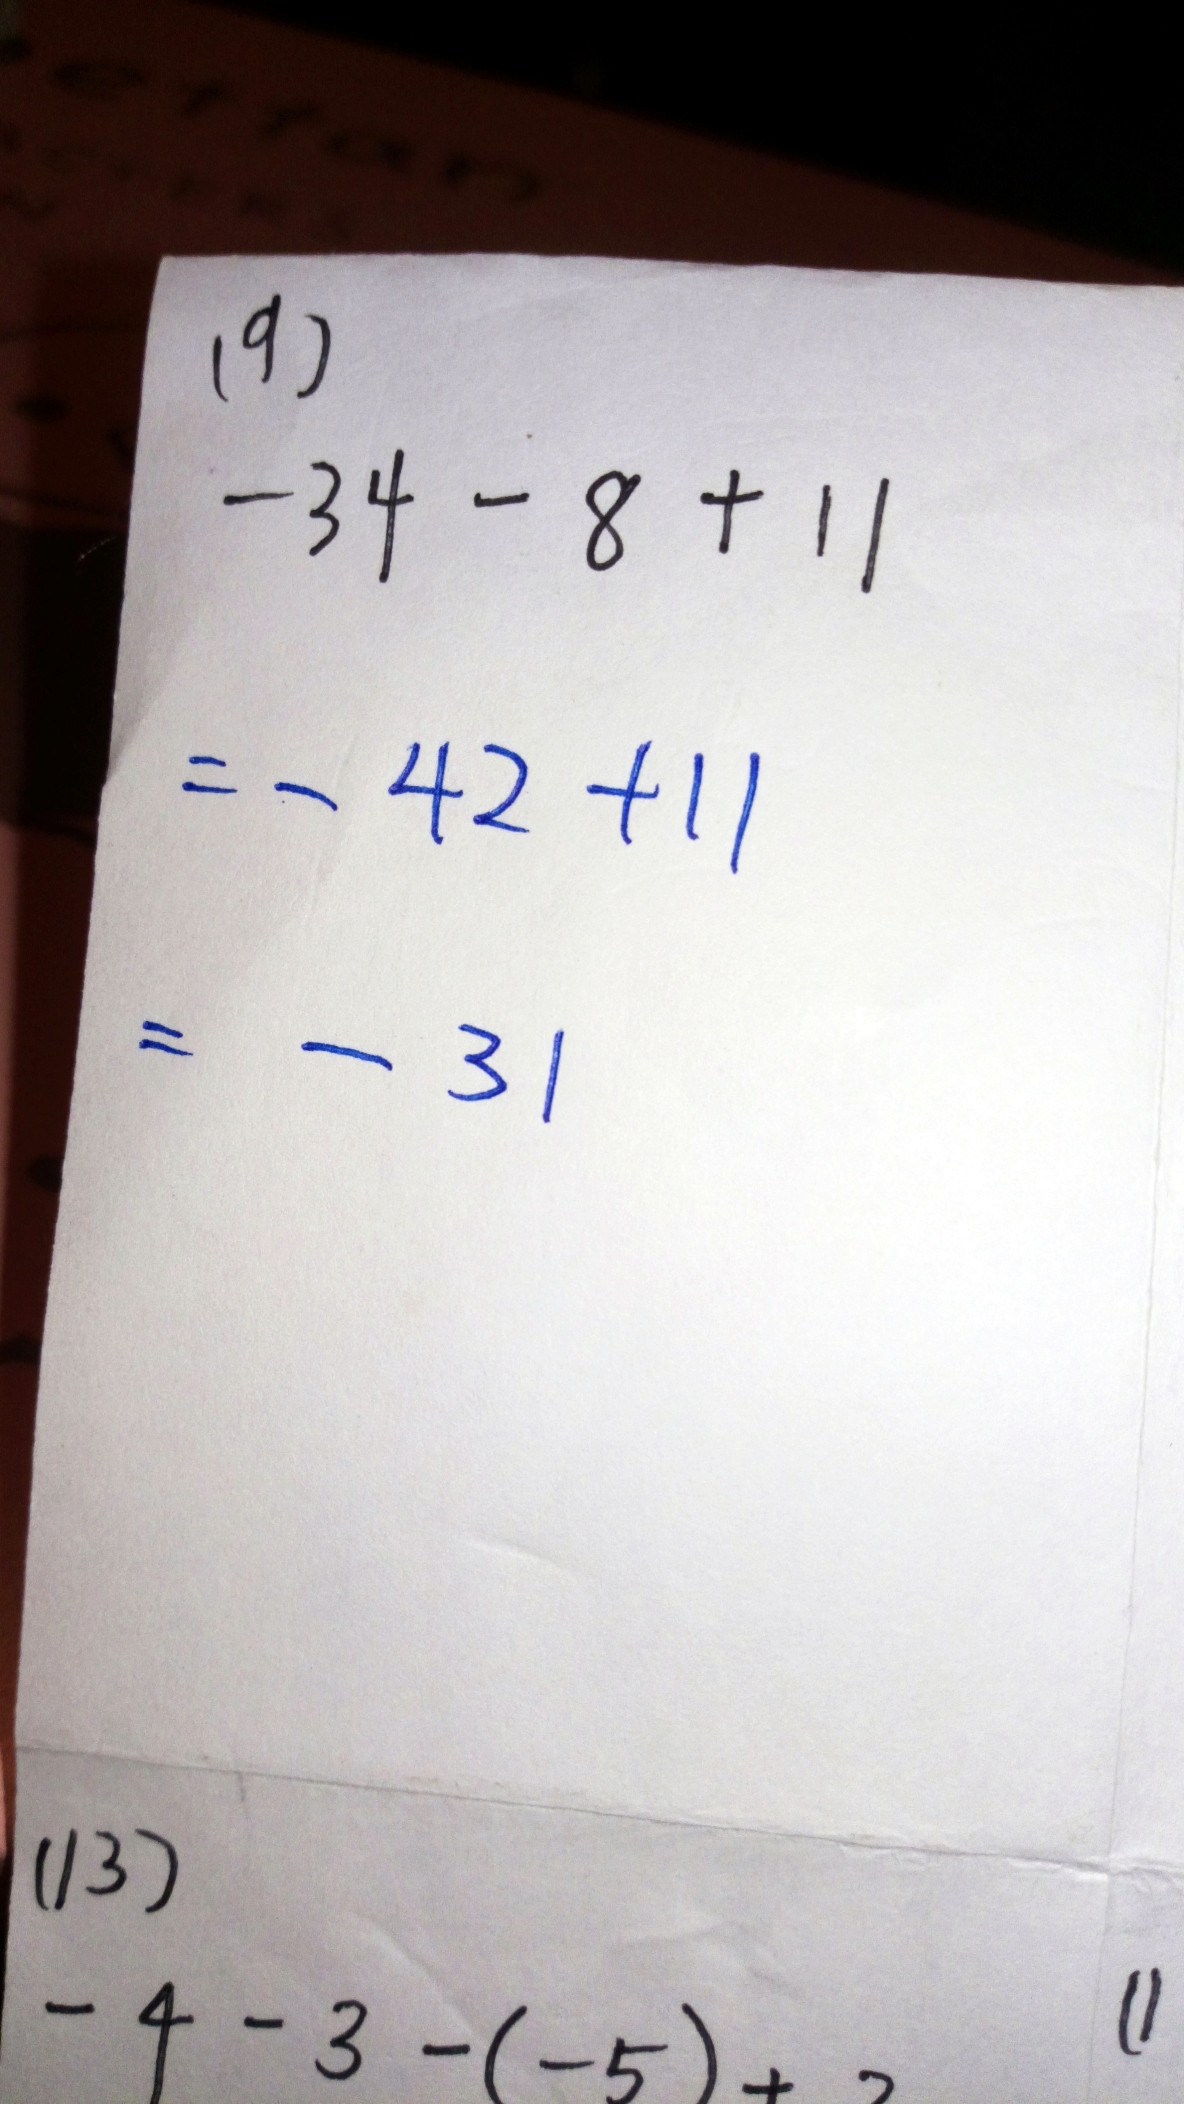 (9)
-34 - 8 + 11
= - 42 + 11
= - 31
(13)
- 4 - 3 - (-5) +